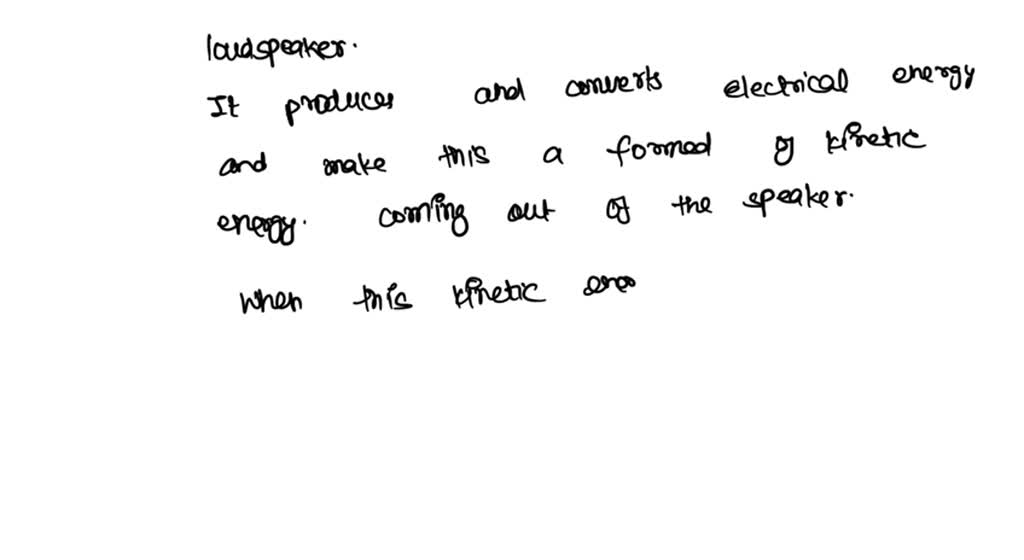 loudspeaker.
It produces and converts electrical energy
and make this a formed of kinetic
energy. coming out of the speaker.
when this kinetic